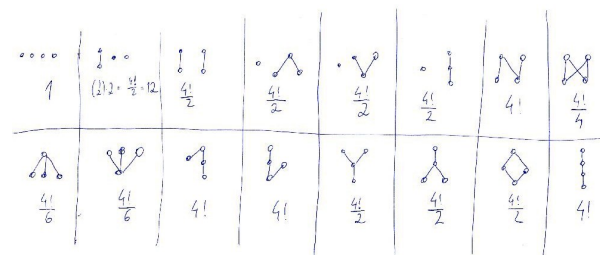 1 (4 2)·2 = 4!/2 = 12 4!/2 4!/2 4!/2 4!/2 4! 4!/4
4!/6 4!/6 4! 4! 4!/2 4!/2 4!/2 4!